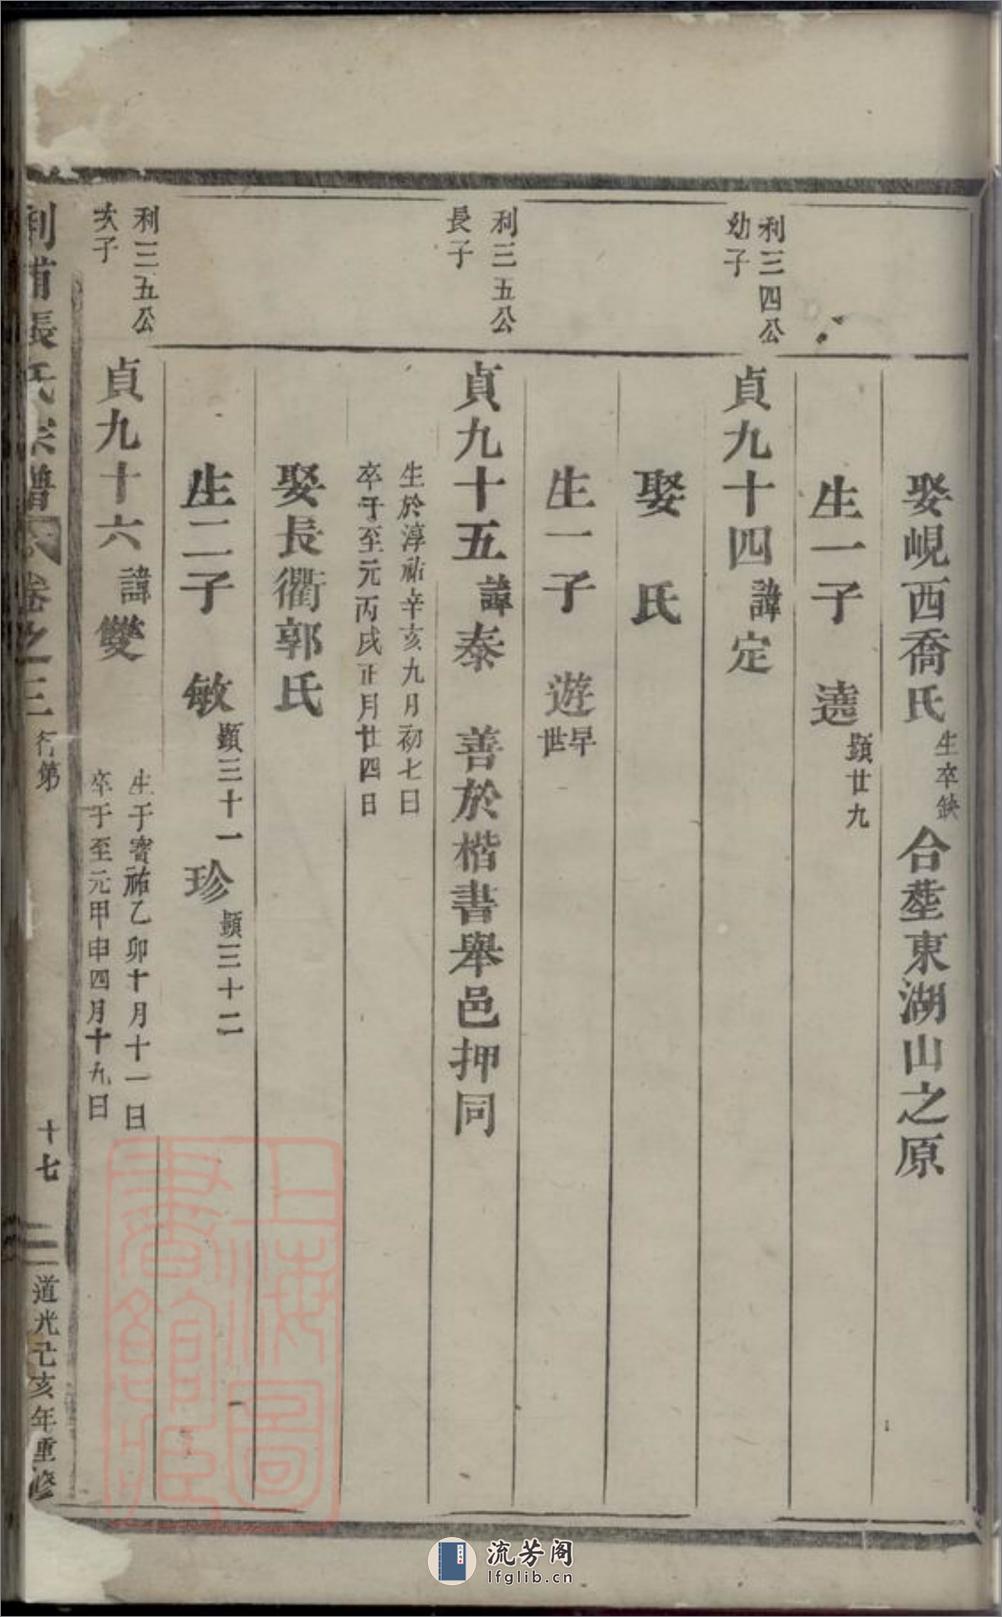 娶峴西喬氏生卒缺合塟東湖山之原
生一子 遶顯廿九
利三四公幼子
貞九十四諱定
娶 氏
生一子 遊早世
利三五公長子
貞九十五諱泰 善於楷書舉邑押同
生於淳祐辛亥九月初七日
卒于至元丙戌正月廿四日
娶長衢郭氏
生二子 敏顯三十一 珍顯三十二
利三五公次子
貞九十六諱變
生于寶祐乙卯十月十一日
卒于至元甲申四月十九日
張氏宗譜 卷之三 行第 十七 道光己亥年重修
上海圖書館藏
流芳阁
lfglib.cn